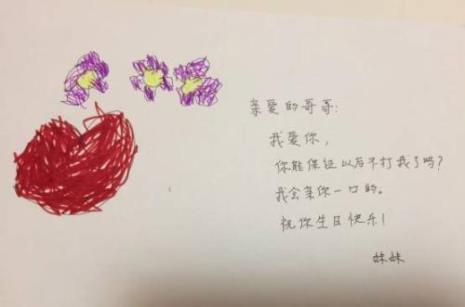 亲爱的哥哥:
我爱你,
你能保证以后不打我了吗?
我会亲你一口的。
祝你生日快乐!
妹妹